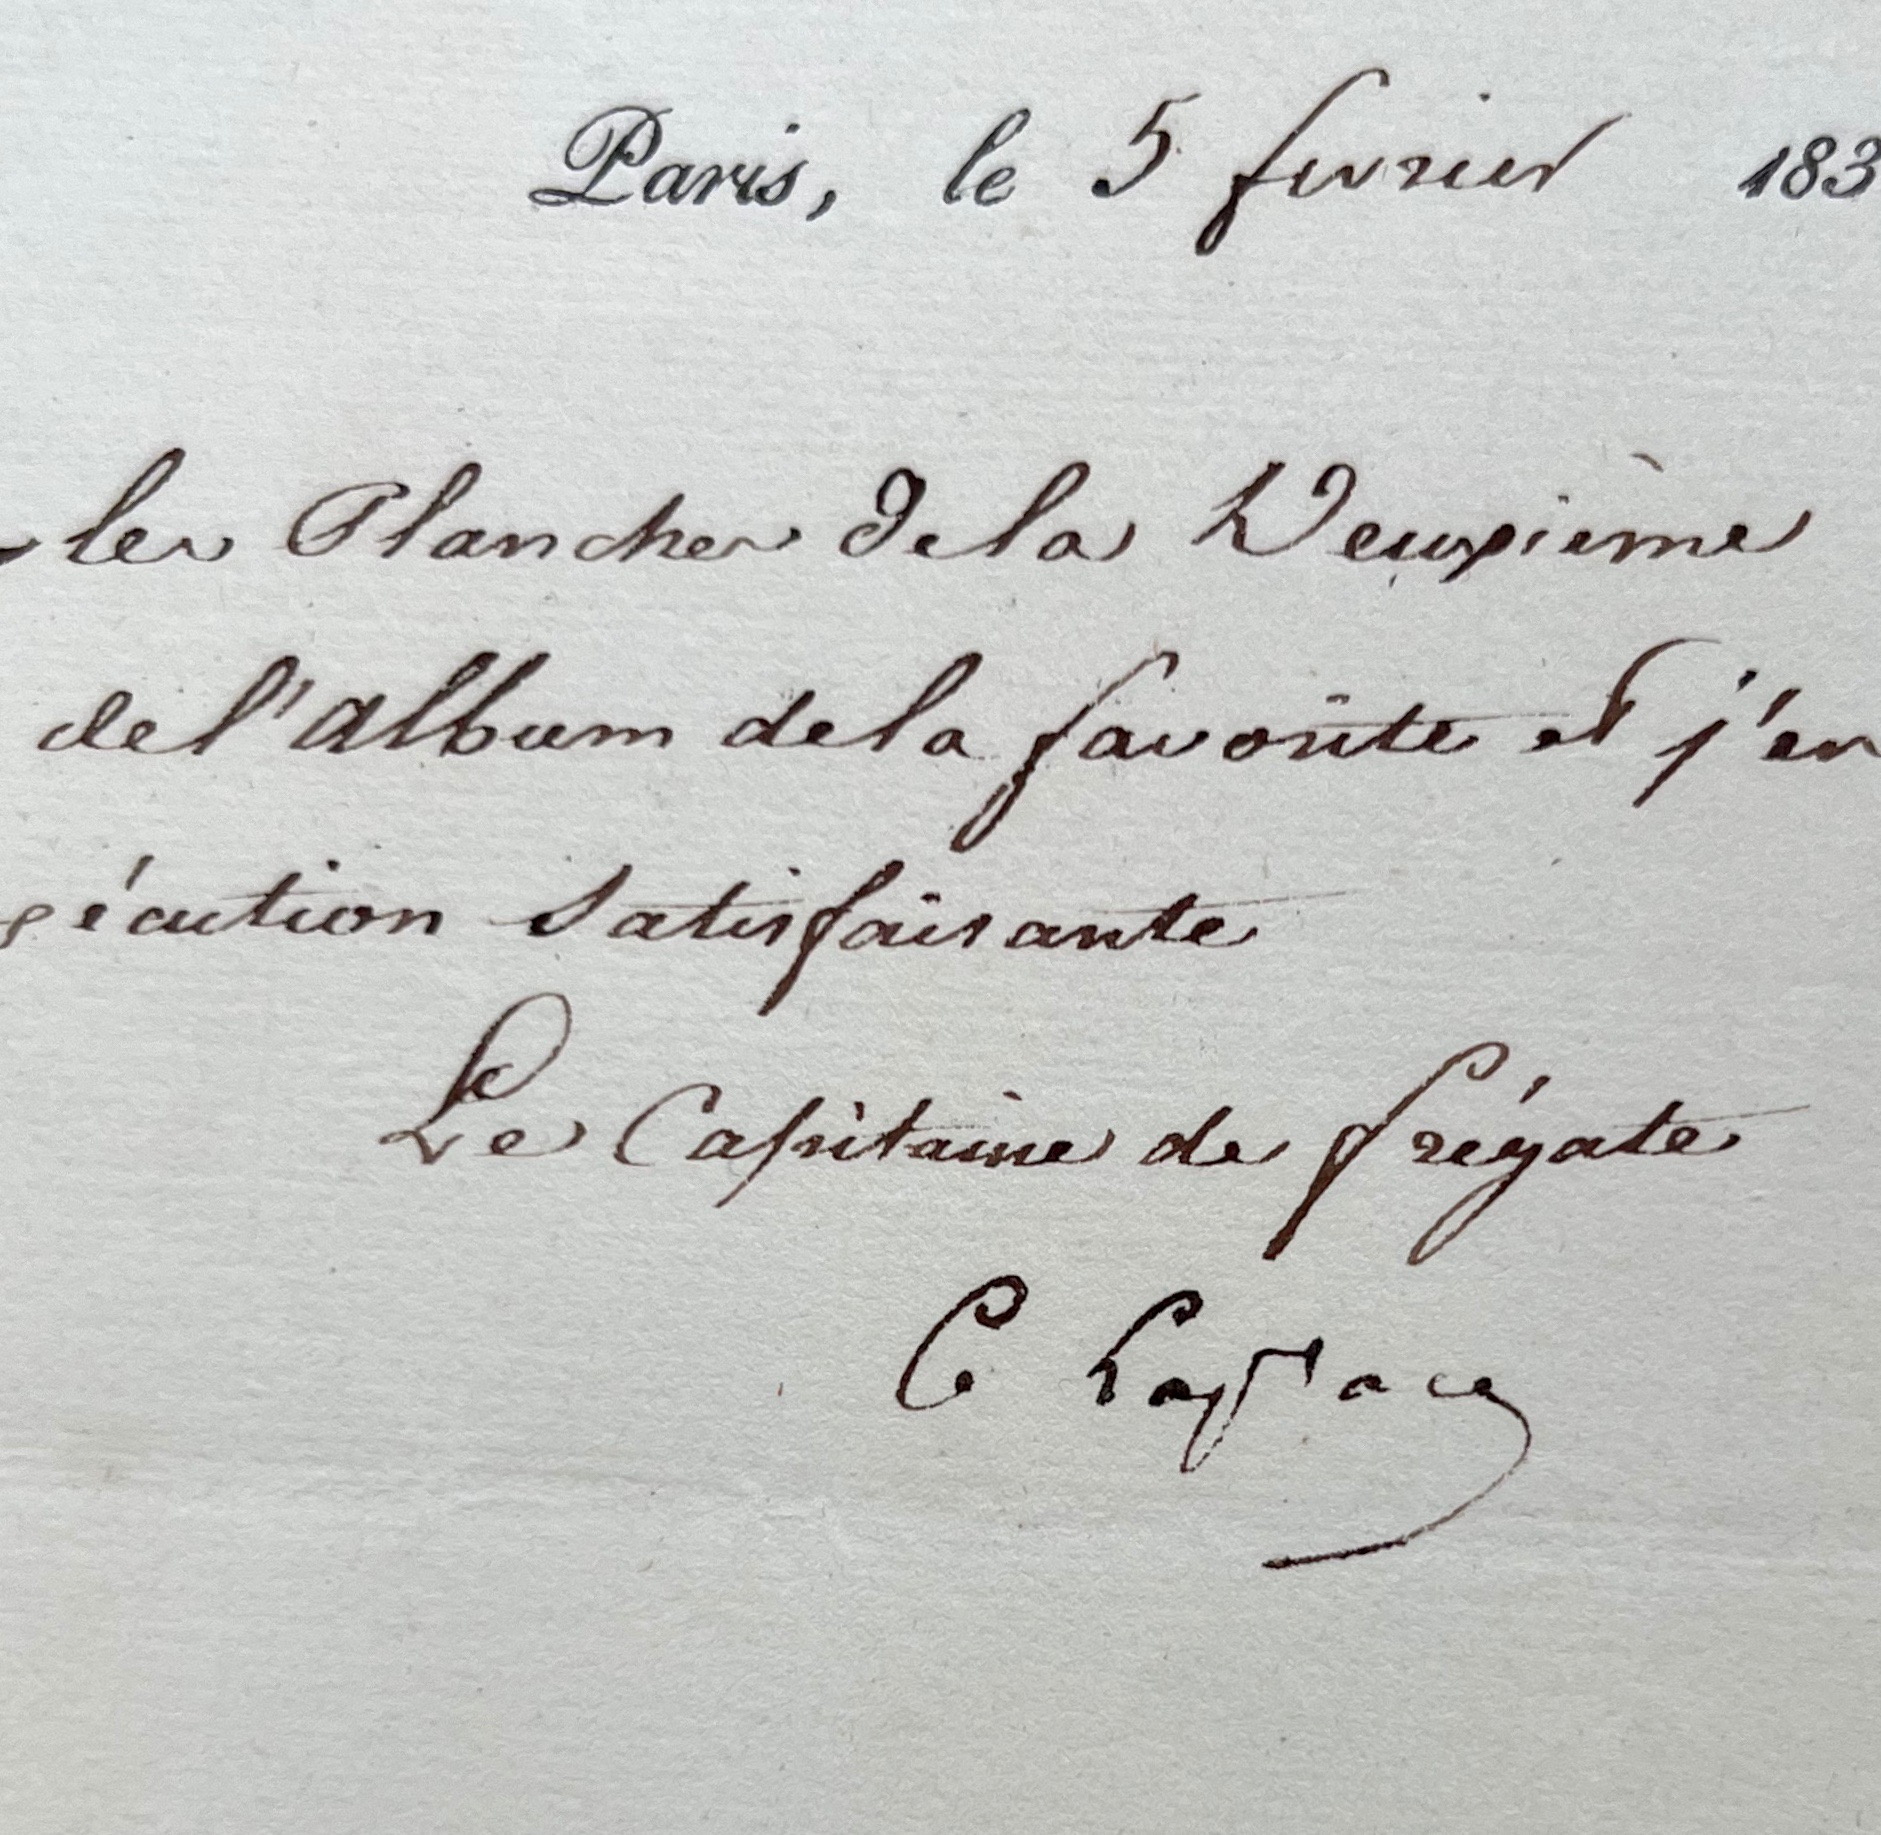 Paris, le 5 fevrier 183
les Planches de la Deuxième
de l'album de la favorite et j'en
xécution satisfaisante
Le Capitaine de frégate
C Laplace